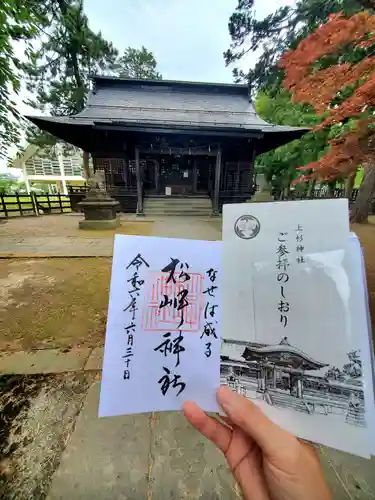 なせば成る
松岬神社
令和六年六月三日
上杉神社
ご参拝のしおり